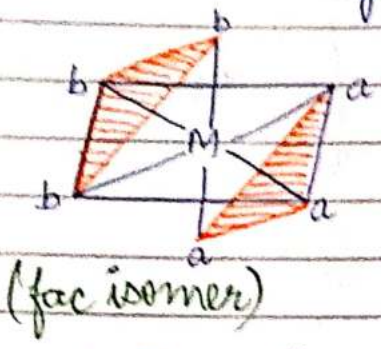 b
b a
M
b a
a
(fac isomer)